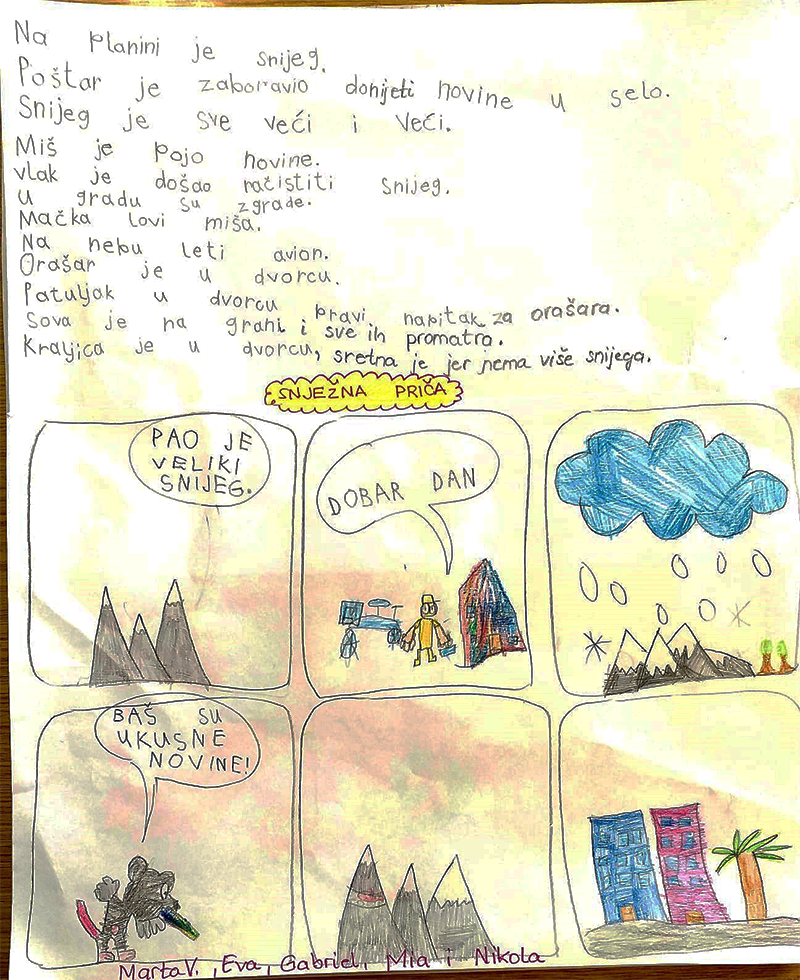 Na planini je snijeg.
Poštar je zaboravio donijeti novine u selo.
Snijeg je sve veći i veći.
Miš je pojo novine.
vlak je došao račistiti snijeg.
u gradu su zgrade.
Mačka lovi miša.
Na nebu leti avion.
Orašar je u dvorcu.
Patuljak u dvorcu pravi napitak za orašara.
Sova je na grani i sve ih promatra.
Kraljica je u dvorcu, sretna je jer nema više snijega.
SNJEŽNA PRIČA
PAO JE
VELIKI
SNIJEG.
DOBAR DAN
BAŠ SU
UKUSNE
NOVINE!
Marta V. , Eva, Gabriel, Mia i Nikola